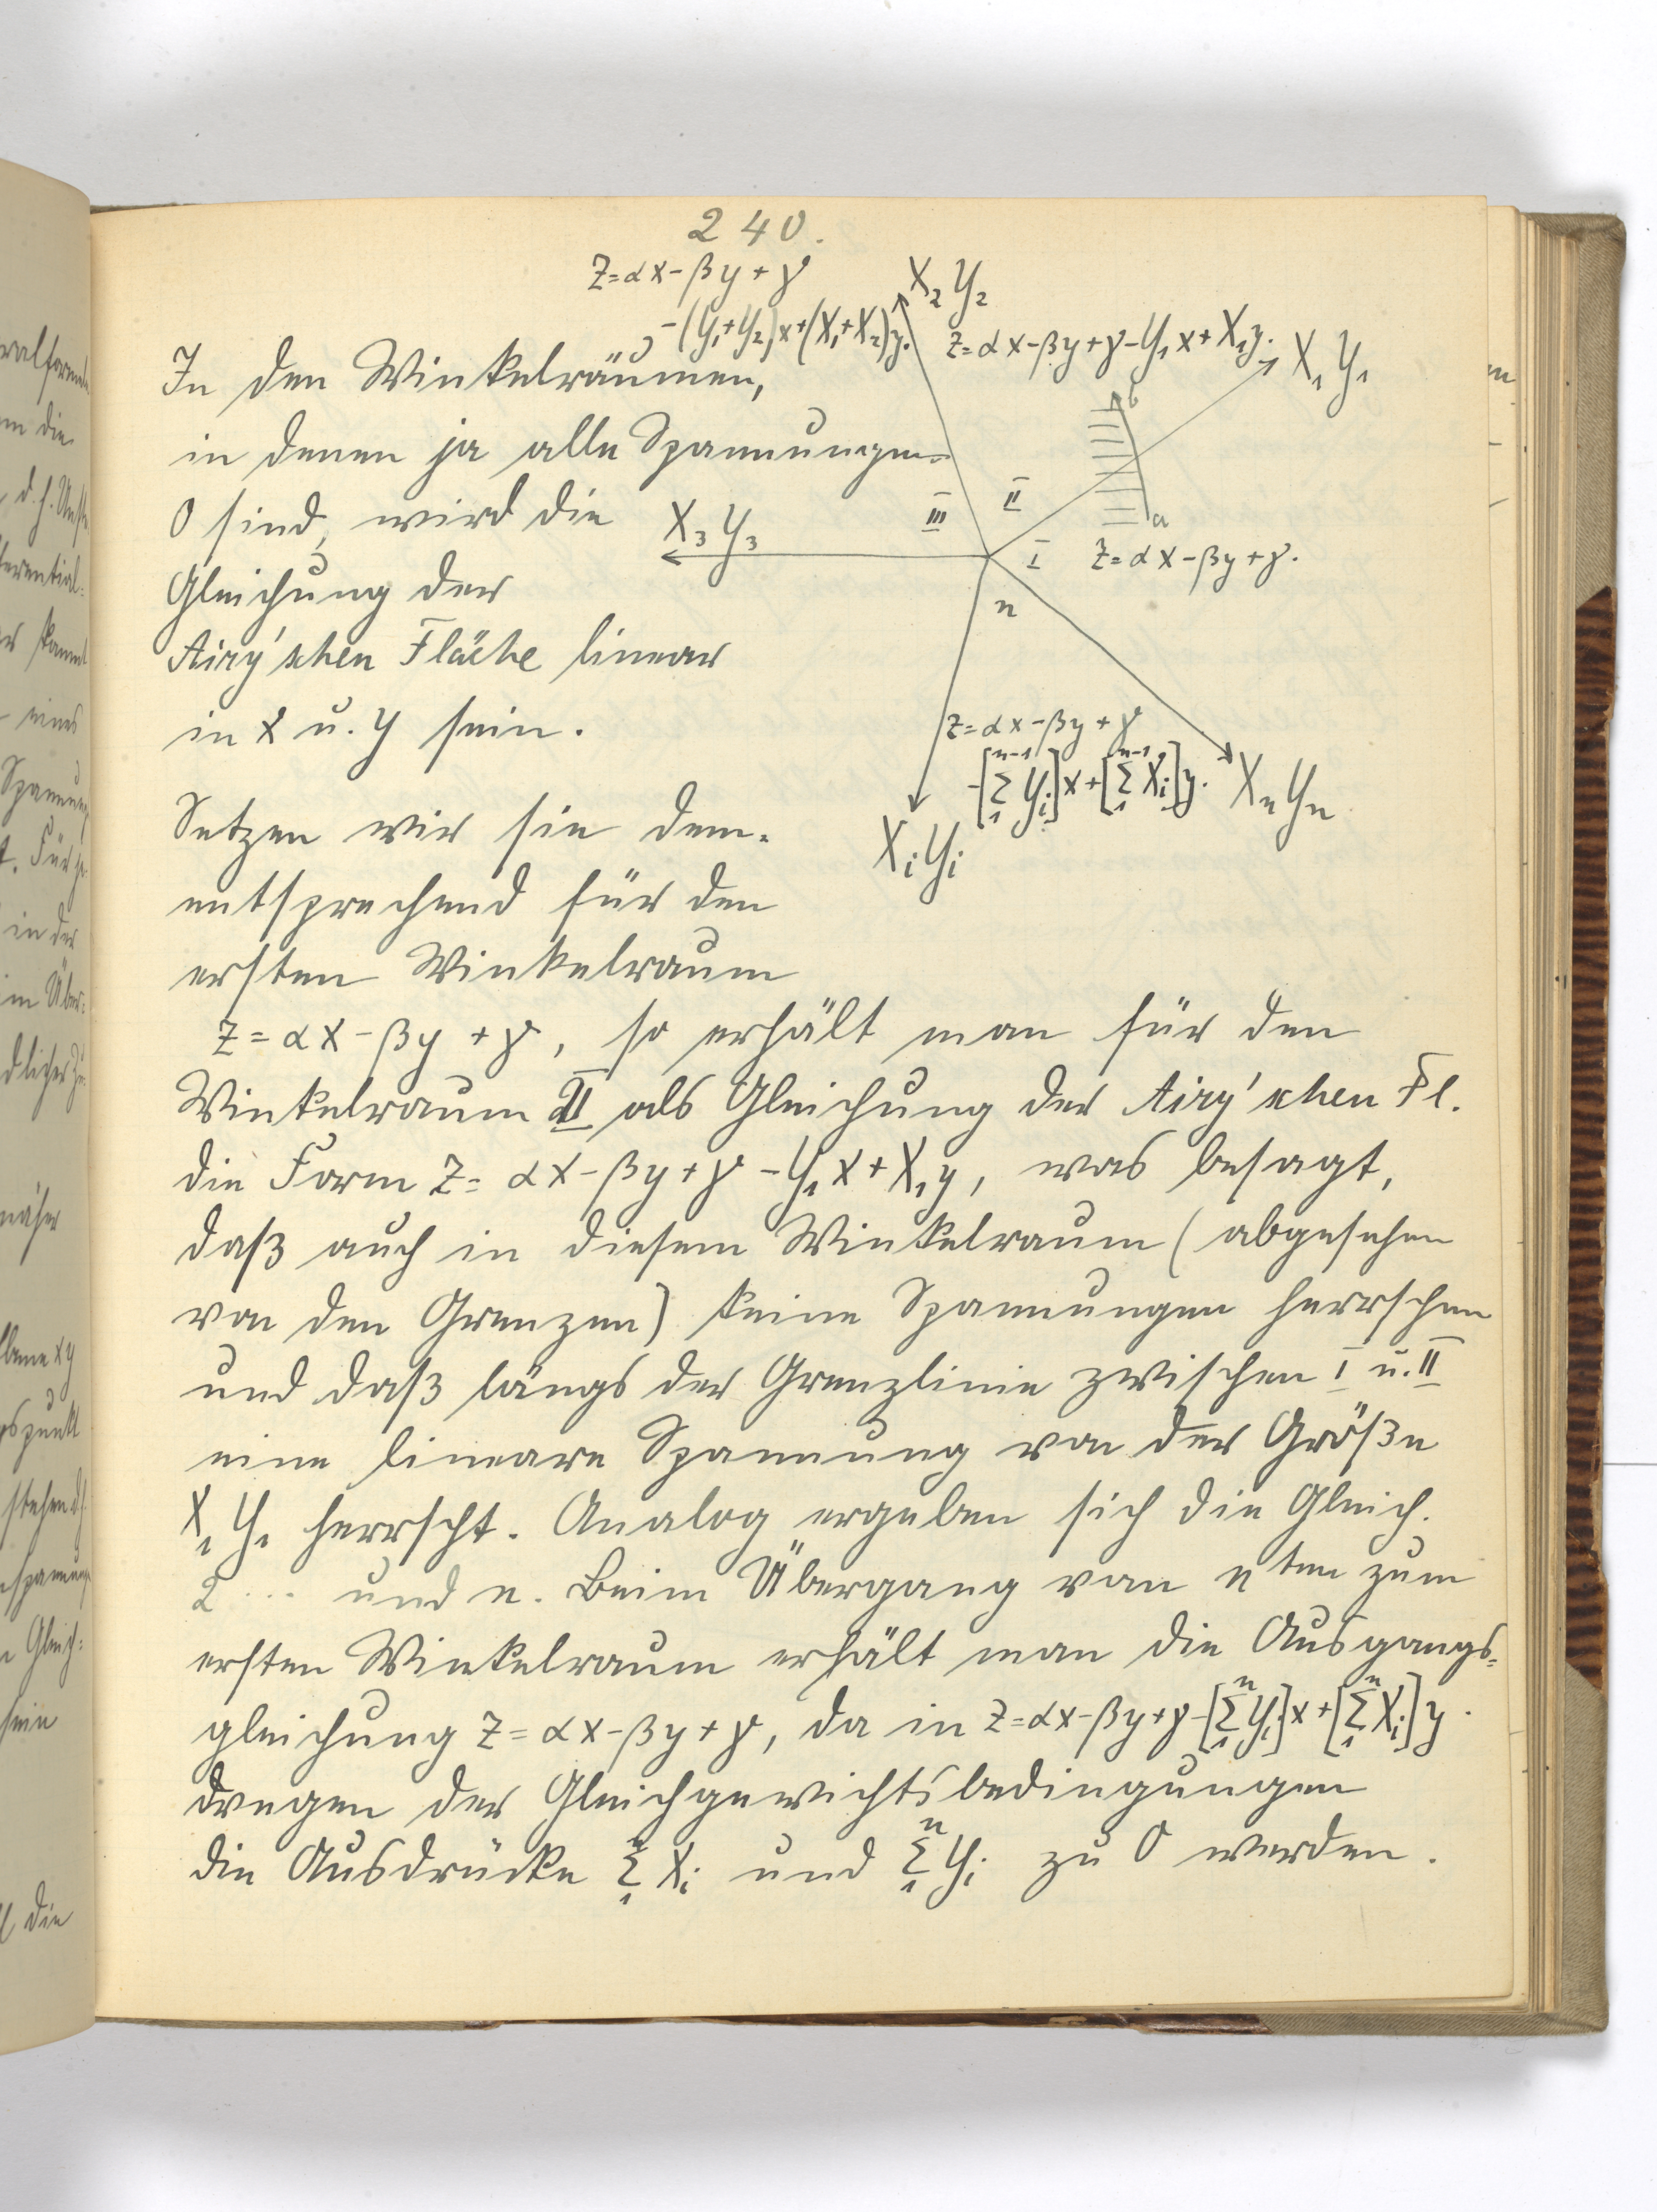 240.
z=αx-βy+γ
-(Y₁+Y₂)x+(X₁+X₂)y.
X₂Y₂
z=αx-βy+γ-Y₁x+X₁y.
X₁Y₁
In den Winkelräumen,
b
in denen ja alle Spannungen
0 sind, wird die
X₃Y₃
III
II
a
I
z=αx-βy+γ.
n
Gleichung der
Airy'schen Fläche linear
in x u. y sein.
z=αx-βy+γ
-[Σ₁ⁿ⁻¹Yᵢ]x+[Σ₁ⁿ⁻¹Xᵢ]y.
XₙYₙ
XᵢYᵢ
Setzen wir sie dem-
entsprechend für den
ersten Winkelraum
z=αx-βy+γ, so erhält man für den
Winkelraum II als Gleichung der Airy'schen Fl.
die Form z=αx-βy+γ-Y₁x+X₁y, was besagt,
daß auch in diesem Winkelraum (abgesehen
von den Grenzen) keine Spannungen herrschen
und daß längs der Grenzlinie zwischen I u. II
eine lineare Spannung von der Größe
X₁Y₁ herrscht. Analog ergeben sich die Gleich.
2 ... und n. Beim Übergang von nten zum
ersten Winkelraum erhält man die Ausgangs=
gleichung z=αx-βy+γ, da in z=αx-βy+γ-[Σ₁ⁿYᵢ]x+[Σ₁ⁿXᵢ]y.
wegen der Gleichgewichtsbedingungen
die Ausdrücke Σ₁ⁿXᵢ und Σ₁ⁿYᵢ zu 0 werden.